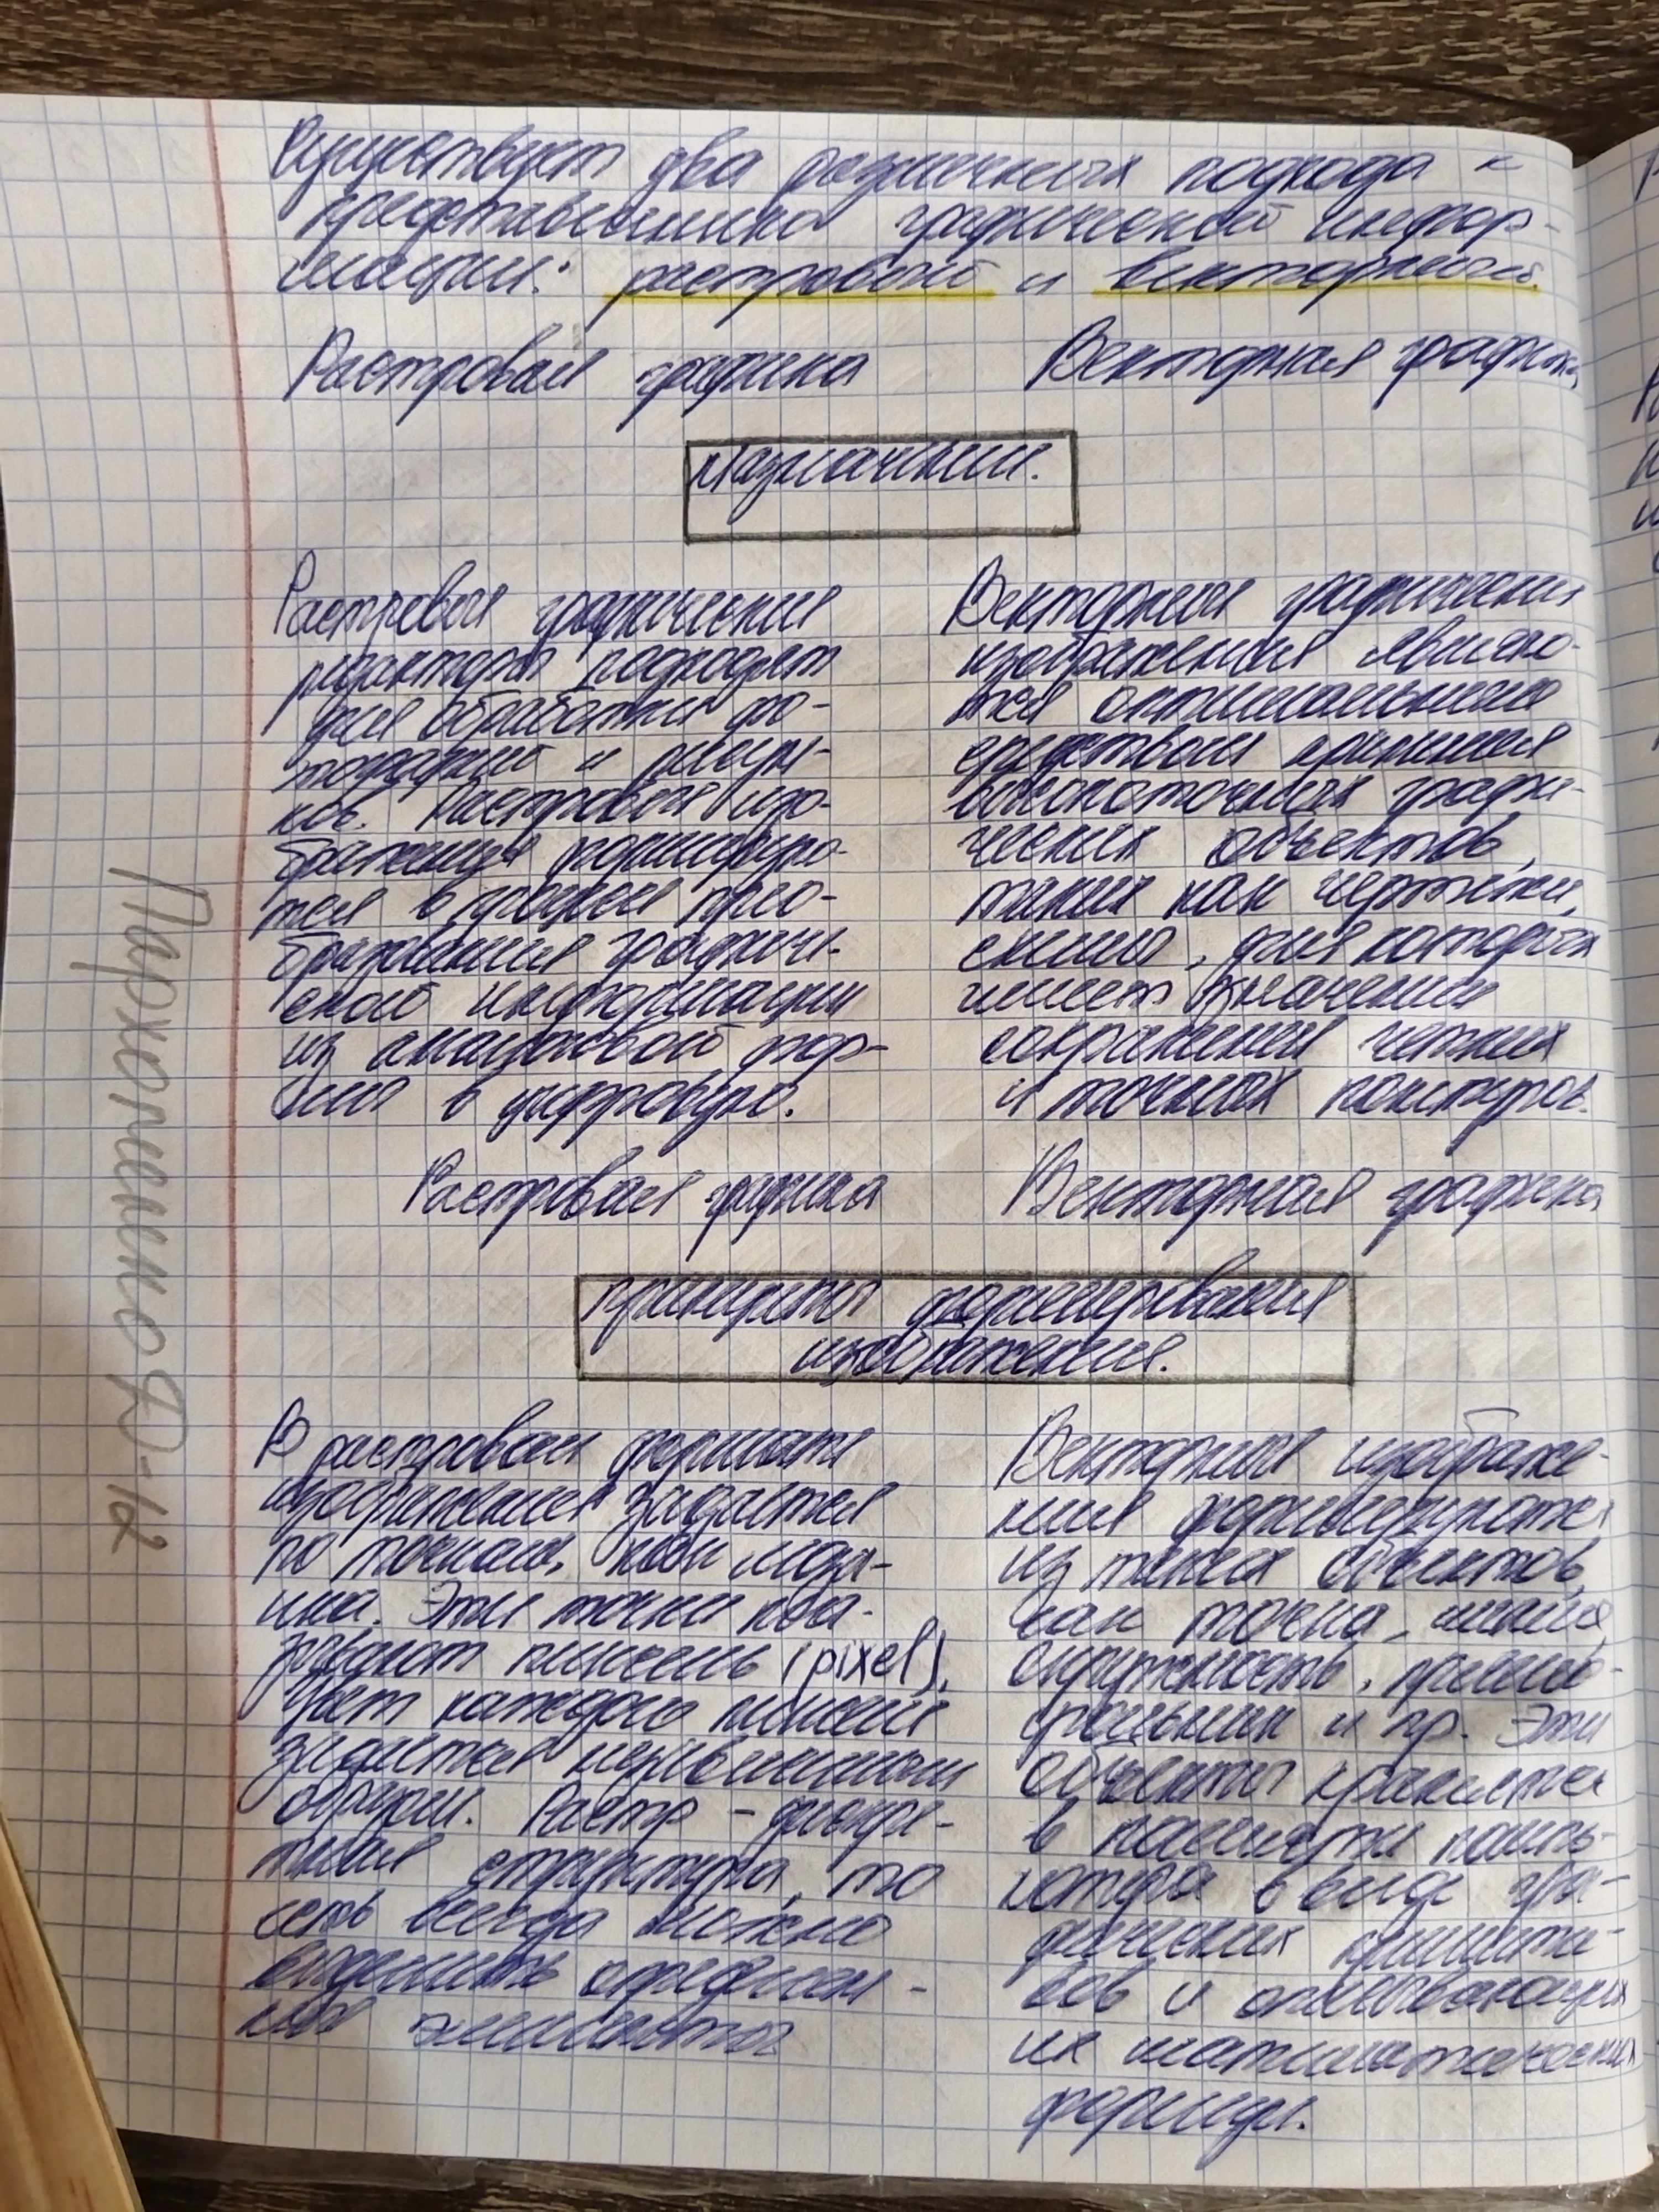 Существует два различных подхода к
представлению графической инфор-
мации: растровый и векторный.
Растровая графика
Векторная графика
Назначение.
Растровые графические
редакторы подходят
для обработки фо-
тографий и рисун-
ков. Растровые изо-
бражения формируют-
тся в процессе прео-
бразования графиче-
ской информации
из аналоговой фор-
мы в цифровую.
Векторные графические
изображения являю-
тся оптимальным
средством хранения
высокоточных графи-
ческих объектов,
таких как чертежи,
схемы, для которых
имеет значение
сохранение четких
и точных контуров.
Растровая графика
Векторная графика
принципы формирования
изображения.
В растровом формате
изображение задается
по точкам, как моза-
ика. Эти точки на-
зывают пиксель (pixel).
Цвет каждого пикселя
задается независимым
образом. Растр - дискре-
тная структура, то
есть всегда можно
выделить определен-
ные элементы
Векторные изображе-
ния формируются
из таких объектов,
как точка, линия,
окружность, прямоу-
гольник и пр. Эти
объекты хранятся
в памяти компь-
ютера в виде гра-
фических примити-
вов и описывающих
их математических
формул.
Пархоменко Д-12